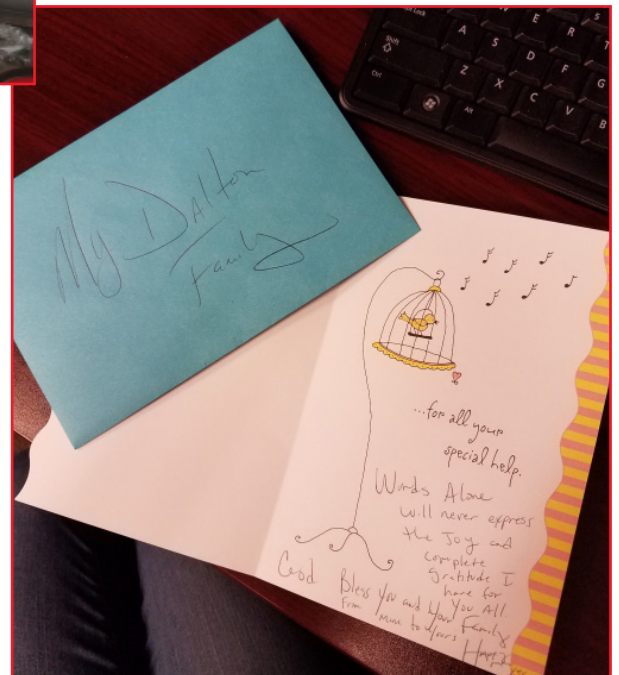 My Dalton
Family
...for all your
special help.
Words Alone
will never express
the Joy and
complete
gratitude I
have for
You All
God Bless You and Your Family
From Mine to Yours
Lock
E R T
Shift A S D F G
Ctrl Z X C V B
Alt